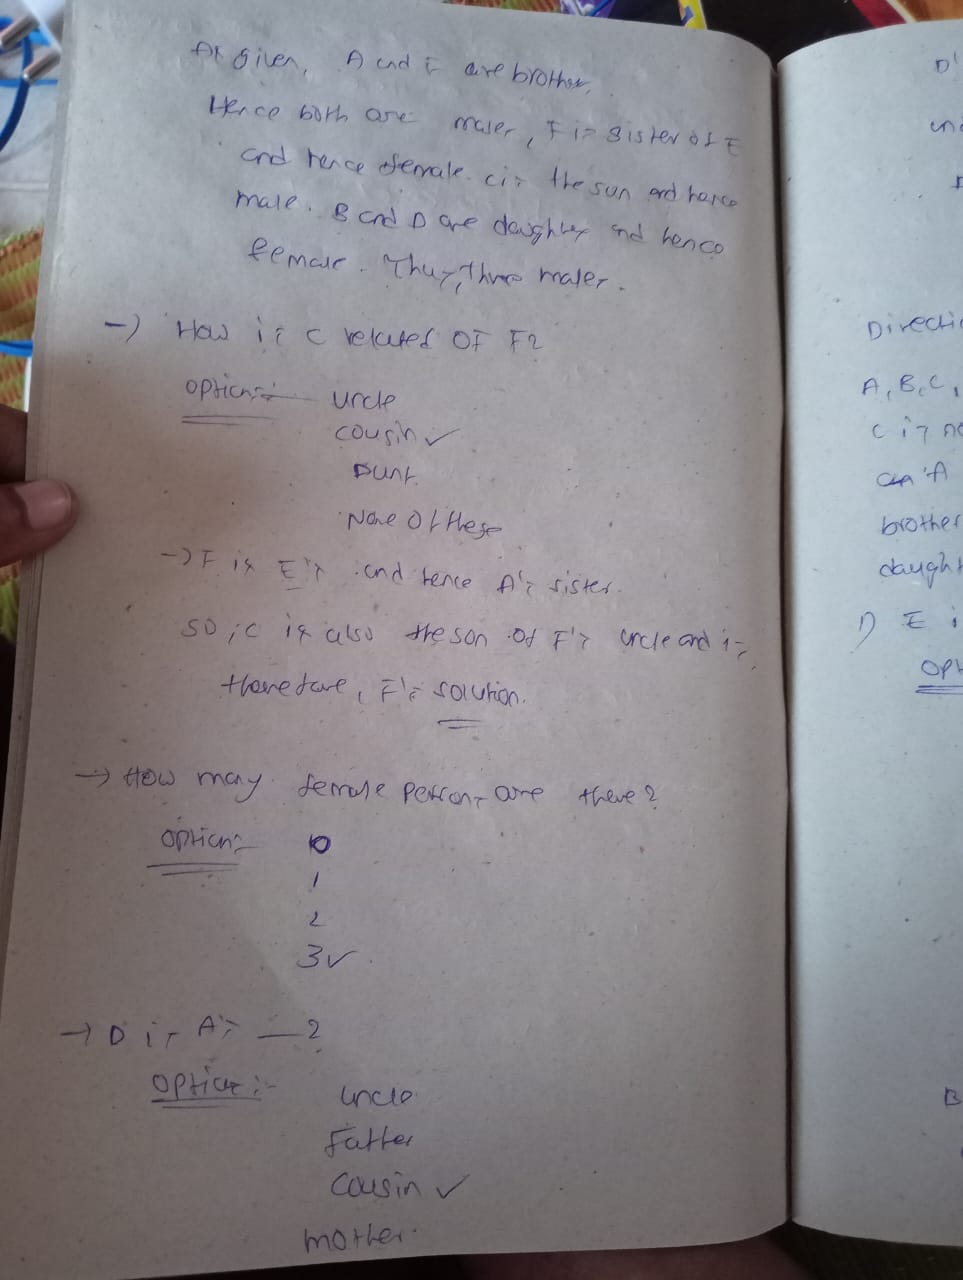 As Given, A and E are brother.
Hence both are males, F is sister of E
and hence female. C is the son and hence
male. B and D are daughter and hence
female. Thus, three males.
-) How is C related OF F?
Options:- uncle
cousin ✓
Aunt
None Of these
-) F is E's and hence A's sister.
SO, C is also the son of F's uncle and is,
therefore, F's solution.
-> How many female persons are there?
Options 0
1
2
3 ✓
-> D is A's __?
Option:- uncle
Father
Cousin ✓
mother
D'
Directi
A, B, C,
C is no
can 'A
brother
daught
1) E i
OPt
B